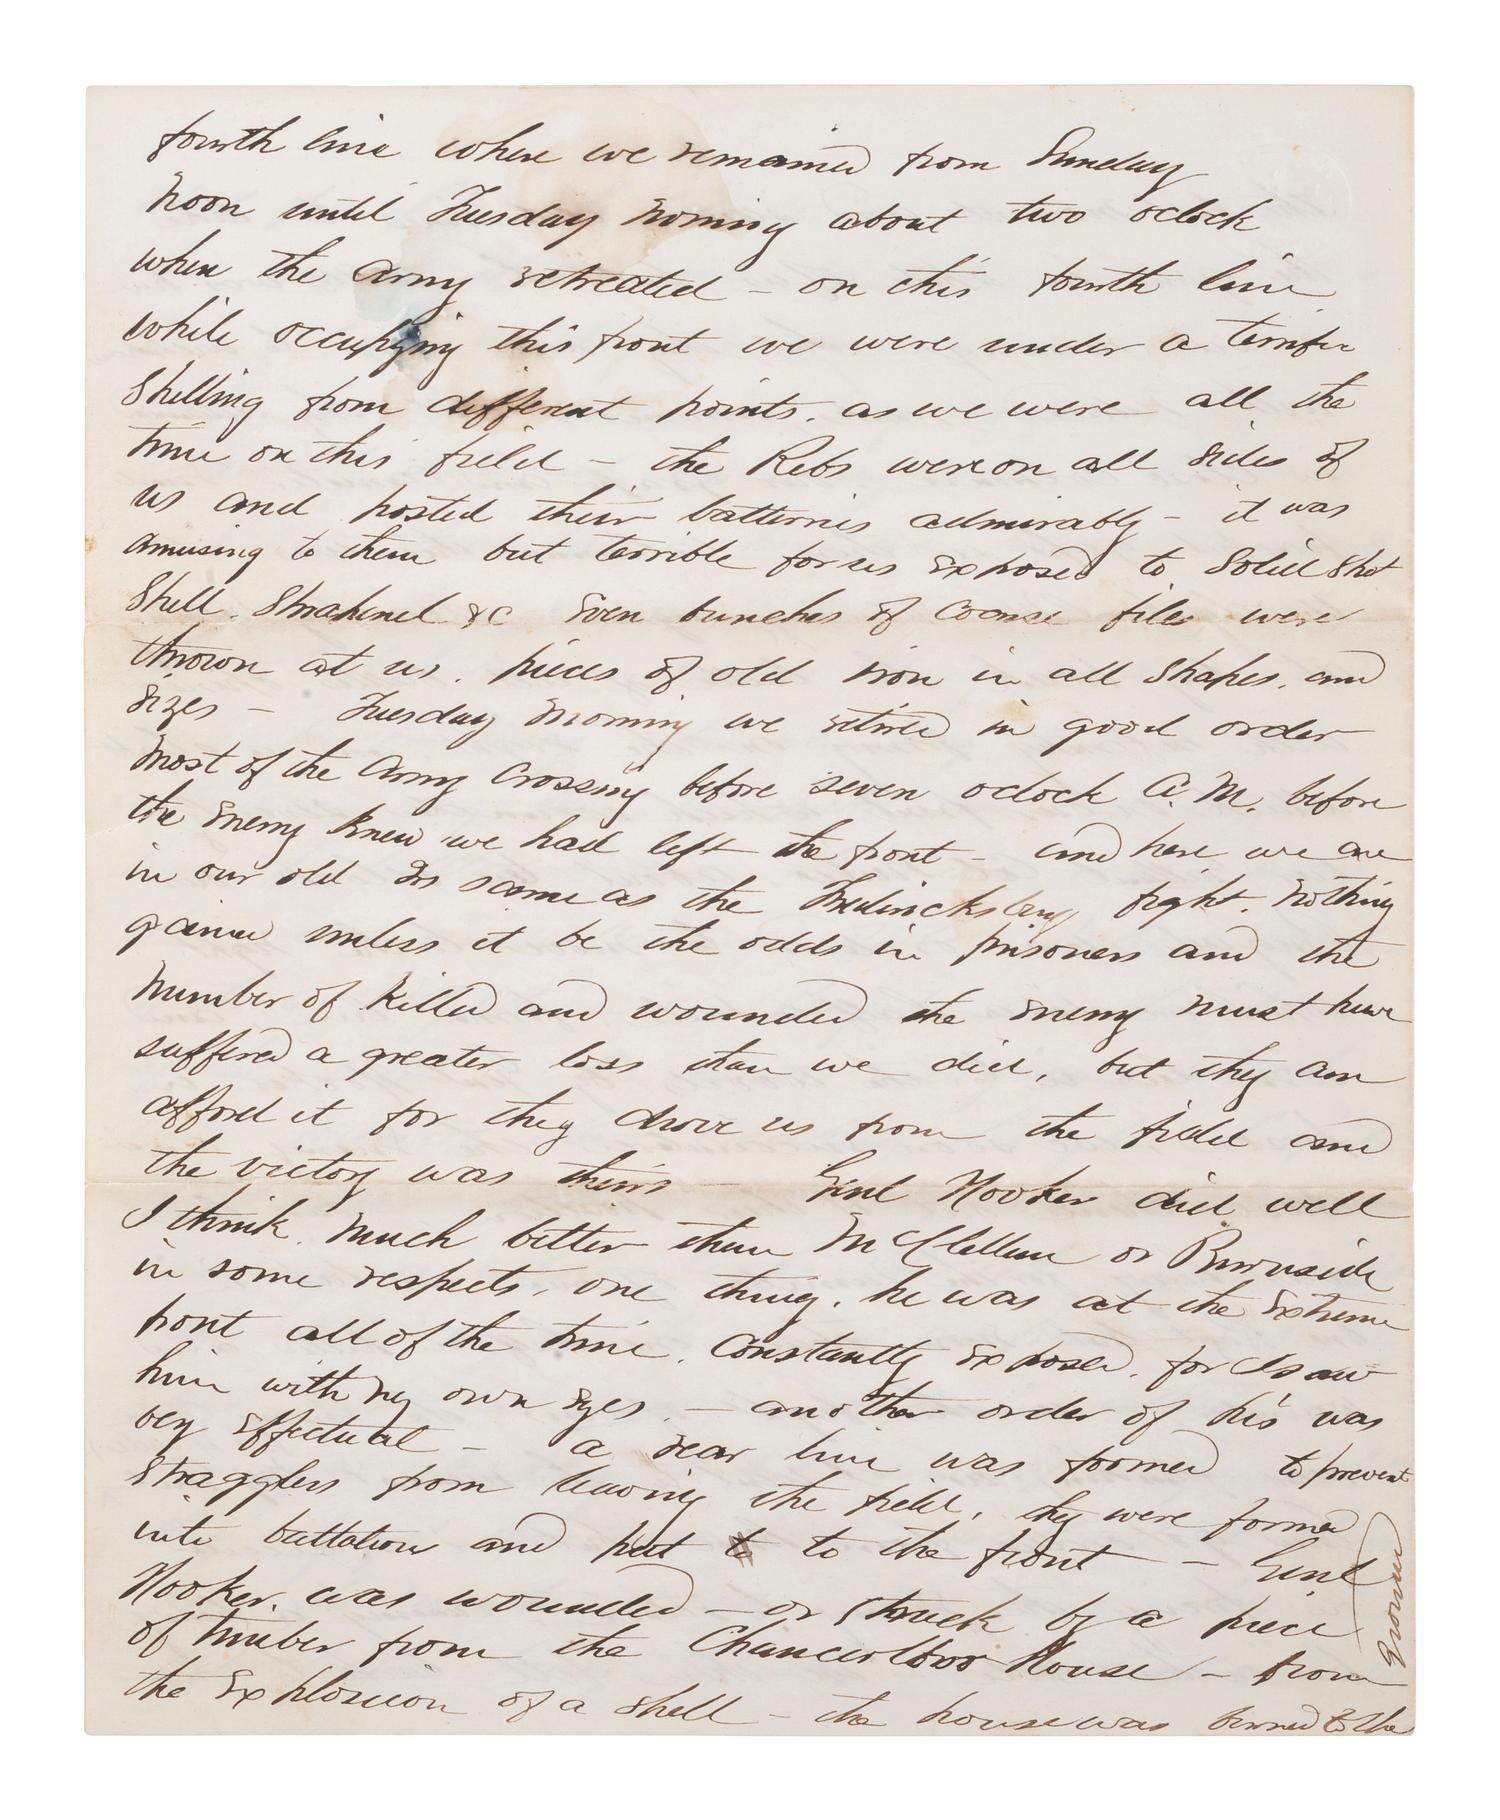 fourth line where we remained from Sunday
Noon until Tuesday Morning about two oclock
when the Army retreated – on this fourth line
while occupying this front we were under a terrific
Shelling from different points. as we were all the
time on this field – the Rebs were on all sides of
us and posted their batteries admirably – it was
amusing to them but terrible for us Exposed to Solid Shot
Shell. Shrahenel &c Even bunches of Coarse files were
thrown at us. pieces of old iron in all Shapes. and
Sizes – Tuesday Morning we retired in good order
Most of the Army Crossing before seven oclock A.M. before
the Enemy Knew we had left the front – and here we are
in our old same as the Fredericksburg fight. Nothing
gained unless it be the odds in prisoners and the
Number of Killed and wounded the Enemy must have
suffered a greater loss than we did, but they can
afford it for they drove us from the field and
the victory was theirs – Genl Hooker did well
I think. Much better than McClellan or Burnside
in some respects, one thing. he was at the Extreme
front all of the time. Constantly Exposed. for I saw
him with my own Eyes. – another order of his was
very Effectual – a rear line was formed to prevent
Stragglers from leaving the field, they were formed
into battalions and put to the front – Genl
Hooker. was wounded – or struck by a piece
of timber from the Chancerlors House – from
the Explosion of a shell – the house was burned to the
ground